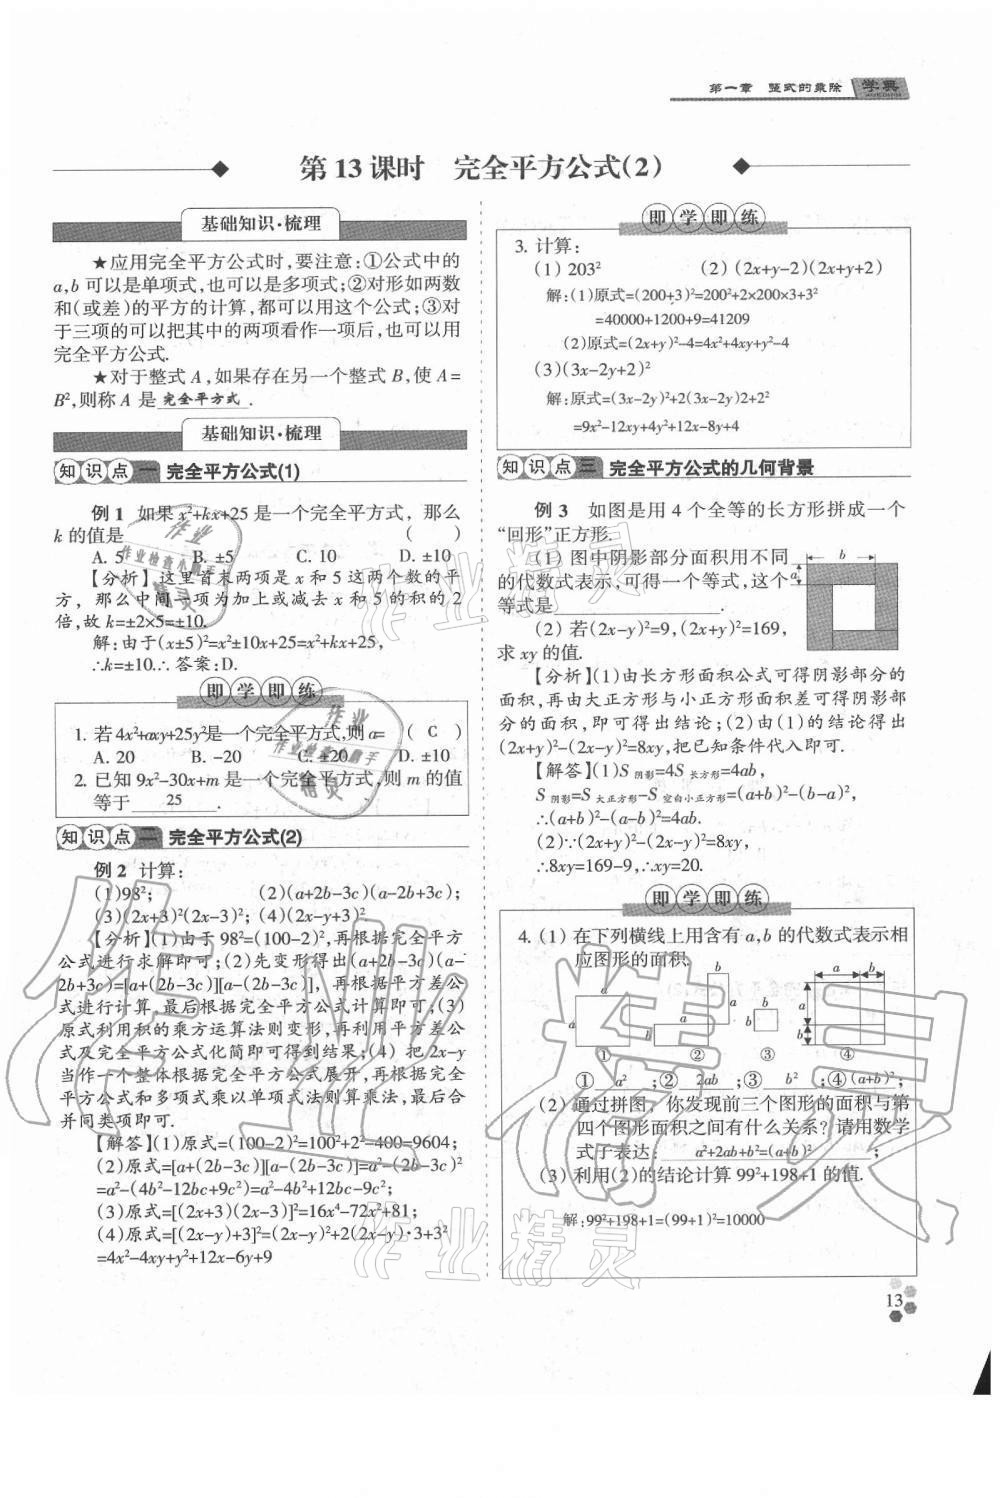 第一章 整式的乘除 学典
第13课时 完全平方公式(2)
基础知识·梳理
★应用完全平方公式时,要注意:①公式中的
a,b可以是单项式,也可以是多项式;②对形如两数
和(或差)的平方的计算,都可以用这个公式;③对
于三项的可以把其中的两项看作一项后,也可以用
完全平方公式.
★对于整式A,如果存在另一个整式B,使A=
B²,则称A是 完全平方式 .
基础知识·梳理
知识点一 完全平方公式(1)
例1 如果x²+kx+25是一个完全平方式，那么
k的值是 ( )
A. 5 B. ±5 C. 10 D. ±10
【分析】这里首末两项是x和5这两个数的平
方，那么中间一项为加上或减去x和5的积的2
倍,故k=±2×5=±10.
解:由于(x±5)²=x²±10x+25=x²+kx+25,
∴k=±10.∴答案:D.
即学即练
1. 若4x²+axy+25y²是一个完全平方式,则a= ( C )
A. 20 B. -20 C. ±20 D. ±10
2. 已知9x²-30x+m是一个完全平方式,则m的值
等于 25 .
知识点二 完全平方公式(2)
例2 计算:
(1)98²; (2)(a+2b-3c)(a-2b+3c);
(3)(2x+3)²(2x-3)²; (4)(2x-y+3)².
【分析】(1)由于98²=(100-2)²,再根据完全平方
公式进行求解即可;(2)先变形得出(a+2b-3c)(a-
2b+3c)=[a+(2b-3c)][a-(2b-3c)]，再根据平方差公
式进行计算,最后根据完全平方公式计算即可;(3)
原式利用积的乘方运算法则变形,再利用平方差公
式及完全平方公式化简即可得到结果;(4)把2x-y
当作一个整体根据完全平方公式展开,再根据完全
平方公式和多项式乘以单项式法则算乘法,最后合
并同类项即可.
【解答】(1)原式=(100-2)²=100²+2²-400=9604;
(2)原式=[a+(2b-3c)][a-(2b-3c)]=a²-(2b-3c)²
=a²-(4b²-12bc+9c²)=a²-4b²+12bc-9c²;
(3)原式=[(2x+3)(2x-3)]²=16x⁴-72x²+81;
(4)原式=[(2x-y)+3]²=(2x-y)²+2(2x-y)·3+3²
=4x²-4xy+y²+12x-6y+9
即学即练
3. 计算:
(1) 203² (2) (2x+y-2)(2x+y+2)
解:(1)原式=(200+3)²=200²+2×200×3+3²
=40000+1200+9=41209
(2)原式=(2x+y)²-4=4x²+4xy+y²-4
(3)(3x-2y+2)²
解:原式=(3x-2y)²+2(3x-2y)2+2²
=9x²-12xy+4y²+12x-8y+4
知识点三 完全平方公式的几何背景
例3 如图是用4个全等的长方形拼成一个
“回形”正方形.
(1) 图中阴影部分面积用不同
的代数式表示,可得一个等式,这个
等式是 .
(2) 若(2x-y)²=9,(2x+y)²=169,
求xy的值.
b
a
【分析】(1)由长方形面积公式可得阴影部分的
面积,再由大正方形与小正方形面积差可得阴影部
分的面积,即可得出结论;(2)由(1)的结论得出
(2x+y)²-(2x-y)²=8xy,把已知条件代入即可.
【解答】(1)S阴影=4S长方形=4ab,
S阴影=S大正方形-S空白小正方形=(a+b)²-(b-a)²,
∴(a+b)²-(a-b)²=4ab.
(2)∵(2x+y)²-(2x-y)²=8xy,
∴8xy=169-9,∴xy=20.
即学即练
4. (1) 在下列横线上用含有a,b的代数式表示相
应图形的面积.
a a b a b b a b a b
① ② ③ ④
① a² ;② 2ab ;③ b² ;④ (a+b)² ;
(2) 通过拼图，你发现前三个图形的面积与第
四个图形面积之间有什么关系? 请用数学
式子表达: a²+2ab+b²=(a+b)² ;
(3) 利用(2)的结论计算99²+198+1的值.
解:99²+198+1=(99+1)²=10000
13
作业精灵
作业检查小助手